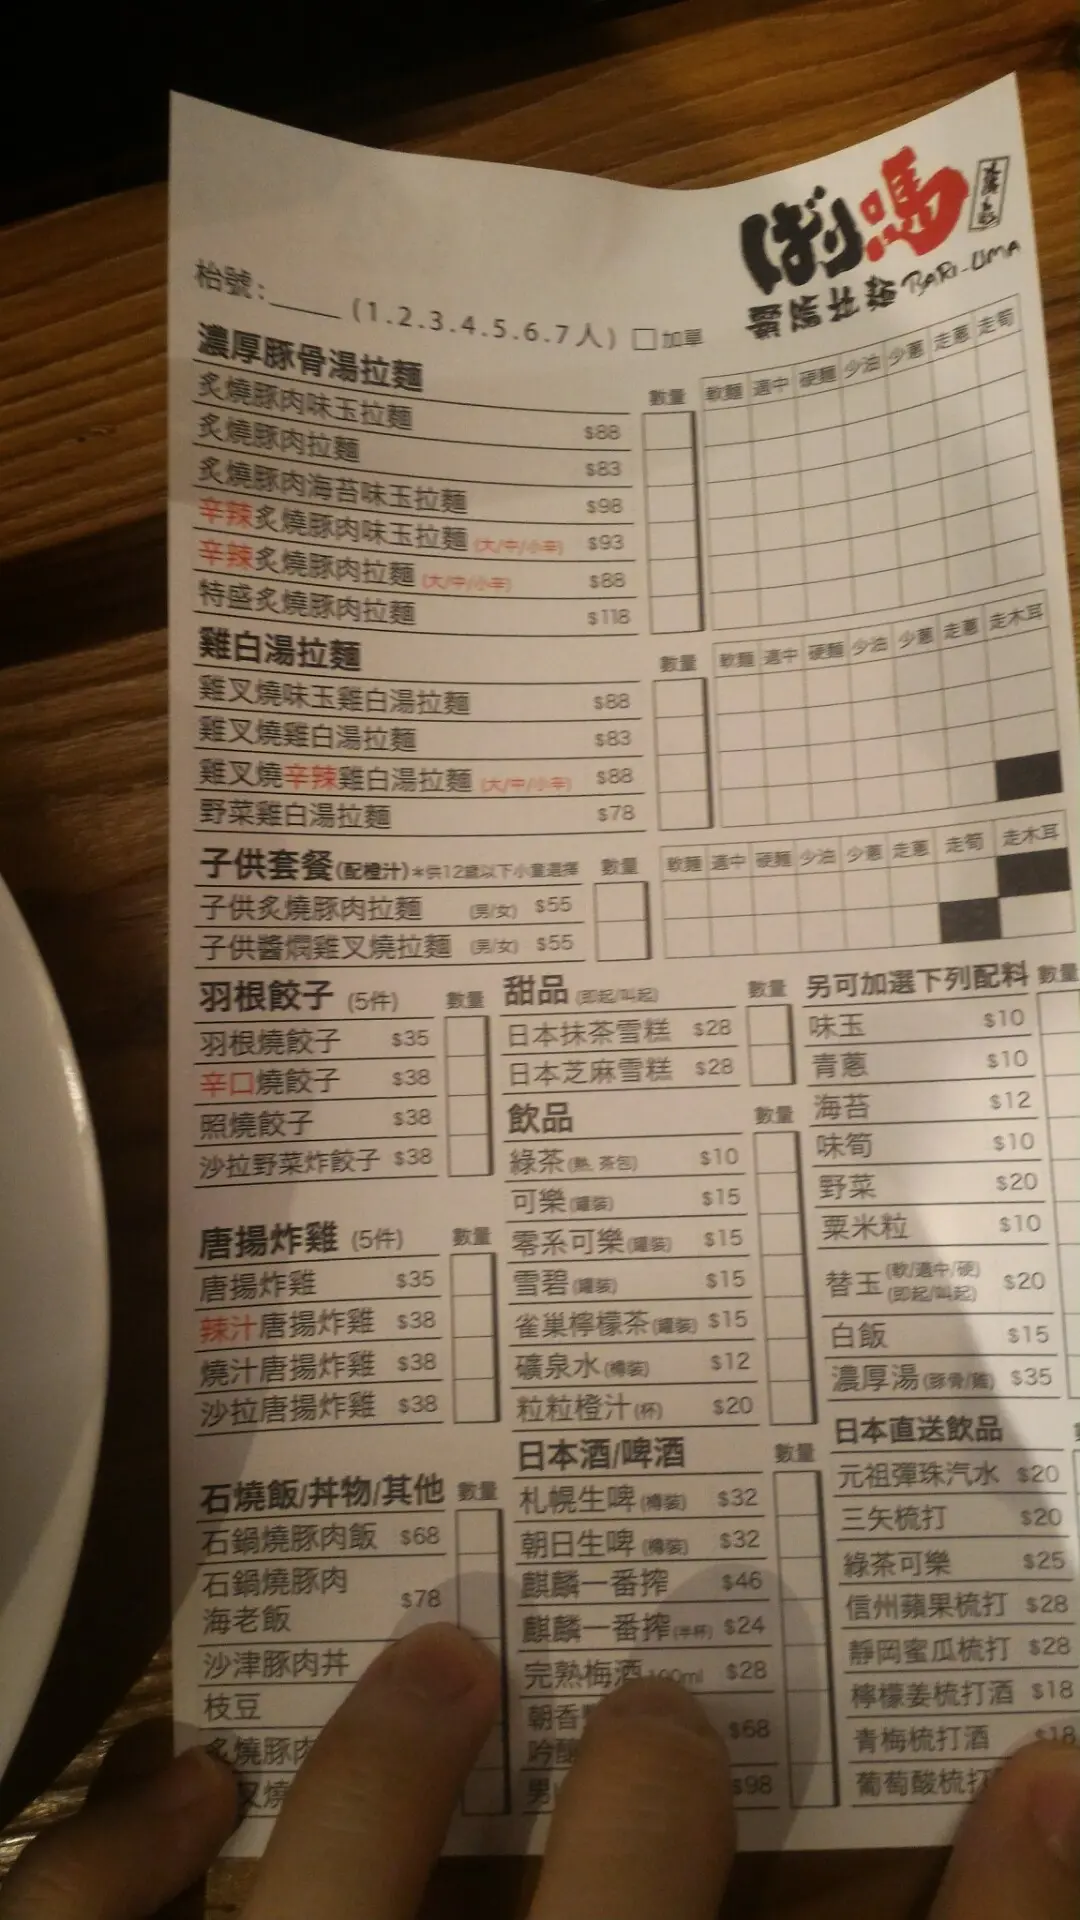 ばり嗎
BARI-UMA
枱號:____ (1.2.3.4.5.6.7人) □加單
濃厚豚骨湯拉麵 數量 軟麵 適中 硬麵 少油 少蔥 走蔥 走筍
炙燒豚肉味玉拉麵 $88
炙燒豚肉拉麵 $83
炙燒豚肉海苔味玉拉麵 $98
辛辣炙燒豚肉味玉拉麵 (大/中/小辛) $93
辛辣炙燒豚肉拉麵 (大/中/小辛) $88
特盛炙燒豚肉拉麵 $118
雞白湯拉麵 數量 軟麵 適中 硬麵 少油 少蔥 走蔥 走木耳
雞叉燒味玉雞白湯拉麵 $88
雞叉燒雞白湯拉麵 $83
雞叉燒辛辣雞白湯拉麵 (大/中/小辛) $88
野菜雞白湯拉麵 $78
子供套餐(配橙汁)*供12歲以下小童選擇 數量 軟麵 適中 硬麵 少油 少蔥 走蔥 走筍 走木耳
子供炙燒豚肉拉麵 (男/女) $55
子供醬燜雞叉燒拉麵 (男/女) $55
羽根餃子 (5件) 數量
羽根燒餃子 $35
辛口燒餃子 $38
照燒餃子 $38
沙拉野菜炸餃子 $38
唐揚炸雞 (5件) 數量
唐揚炸雞 $35
辣汁唐揚炸雞 $38
燒汁唐揚炸雞 $38
沙拉唐揚炸雞 $38
石燒飯/丼物/其他 數量
石鍋燒豚肉飯 $68
石鍋燒豚肉
海老飯 $78
沙津豚肉丼
枝豆
炙燒豚肉
叉燒
甜品 (即起/叫起) 數量
日本抹茶雪糕 $28
日本芝麻雪糕 $28
飲品 數量
綠茶(熱, 茶包) $10
可樂(罐裝) $15
零系可樂(罐裝) $15
雪碧(罐裝) $15
雀巢檸檬茶(罐裝) $15
礦泉水(樽裝) $12
粒粒橙汁(杯) $20
日本酒/啤酒 數量
札幌生啤(樽裝) $32
朝日生啤(樽裝) $32
麒麟一番搾 $46
麒麟一番搾(半杯) $24
完熟梅酒 100ml $28
朝香
吟釀 $68
男 $98
另可加選下列配料 數量
味玉 $10
青蔥 $10
海苔 $12
味筍 $10
野菜 $20
粟米粒 $10
替玉(軟/適中/硬)(即起/叫起) $20
白飯 $15
濃厚湯(豚骨/雞) $35
日本直送飲品
元祖彈珠汽水 $20
三矢梳打 $20
綠茶可樂 $25
信州蘋果梳打 $28
靜岡蜜瓜梳打 $28
檸檬姜梳打酒 $18
青梅梳打酒 $18
葡萄酸梳打